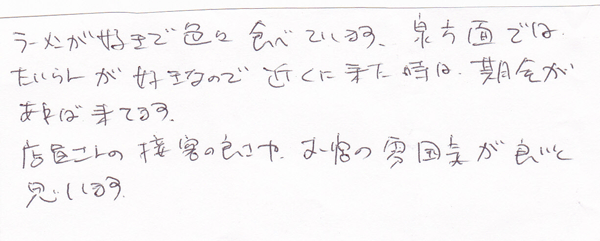 ラーメンが好きで色々食べています。泉方面では
たいらんが好きなので近くに来た時は、期会が
あれば来てます。
店員さんの接客の良さや、お店の雰囲気が良いと
思います。